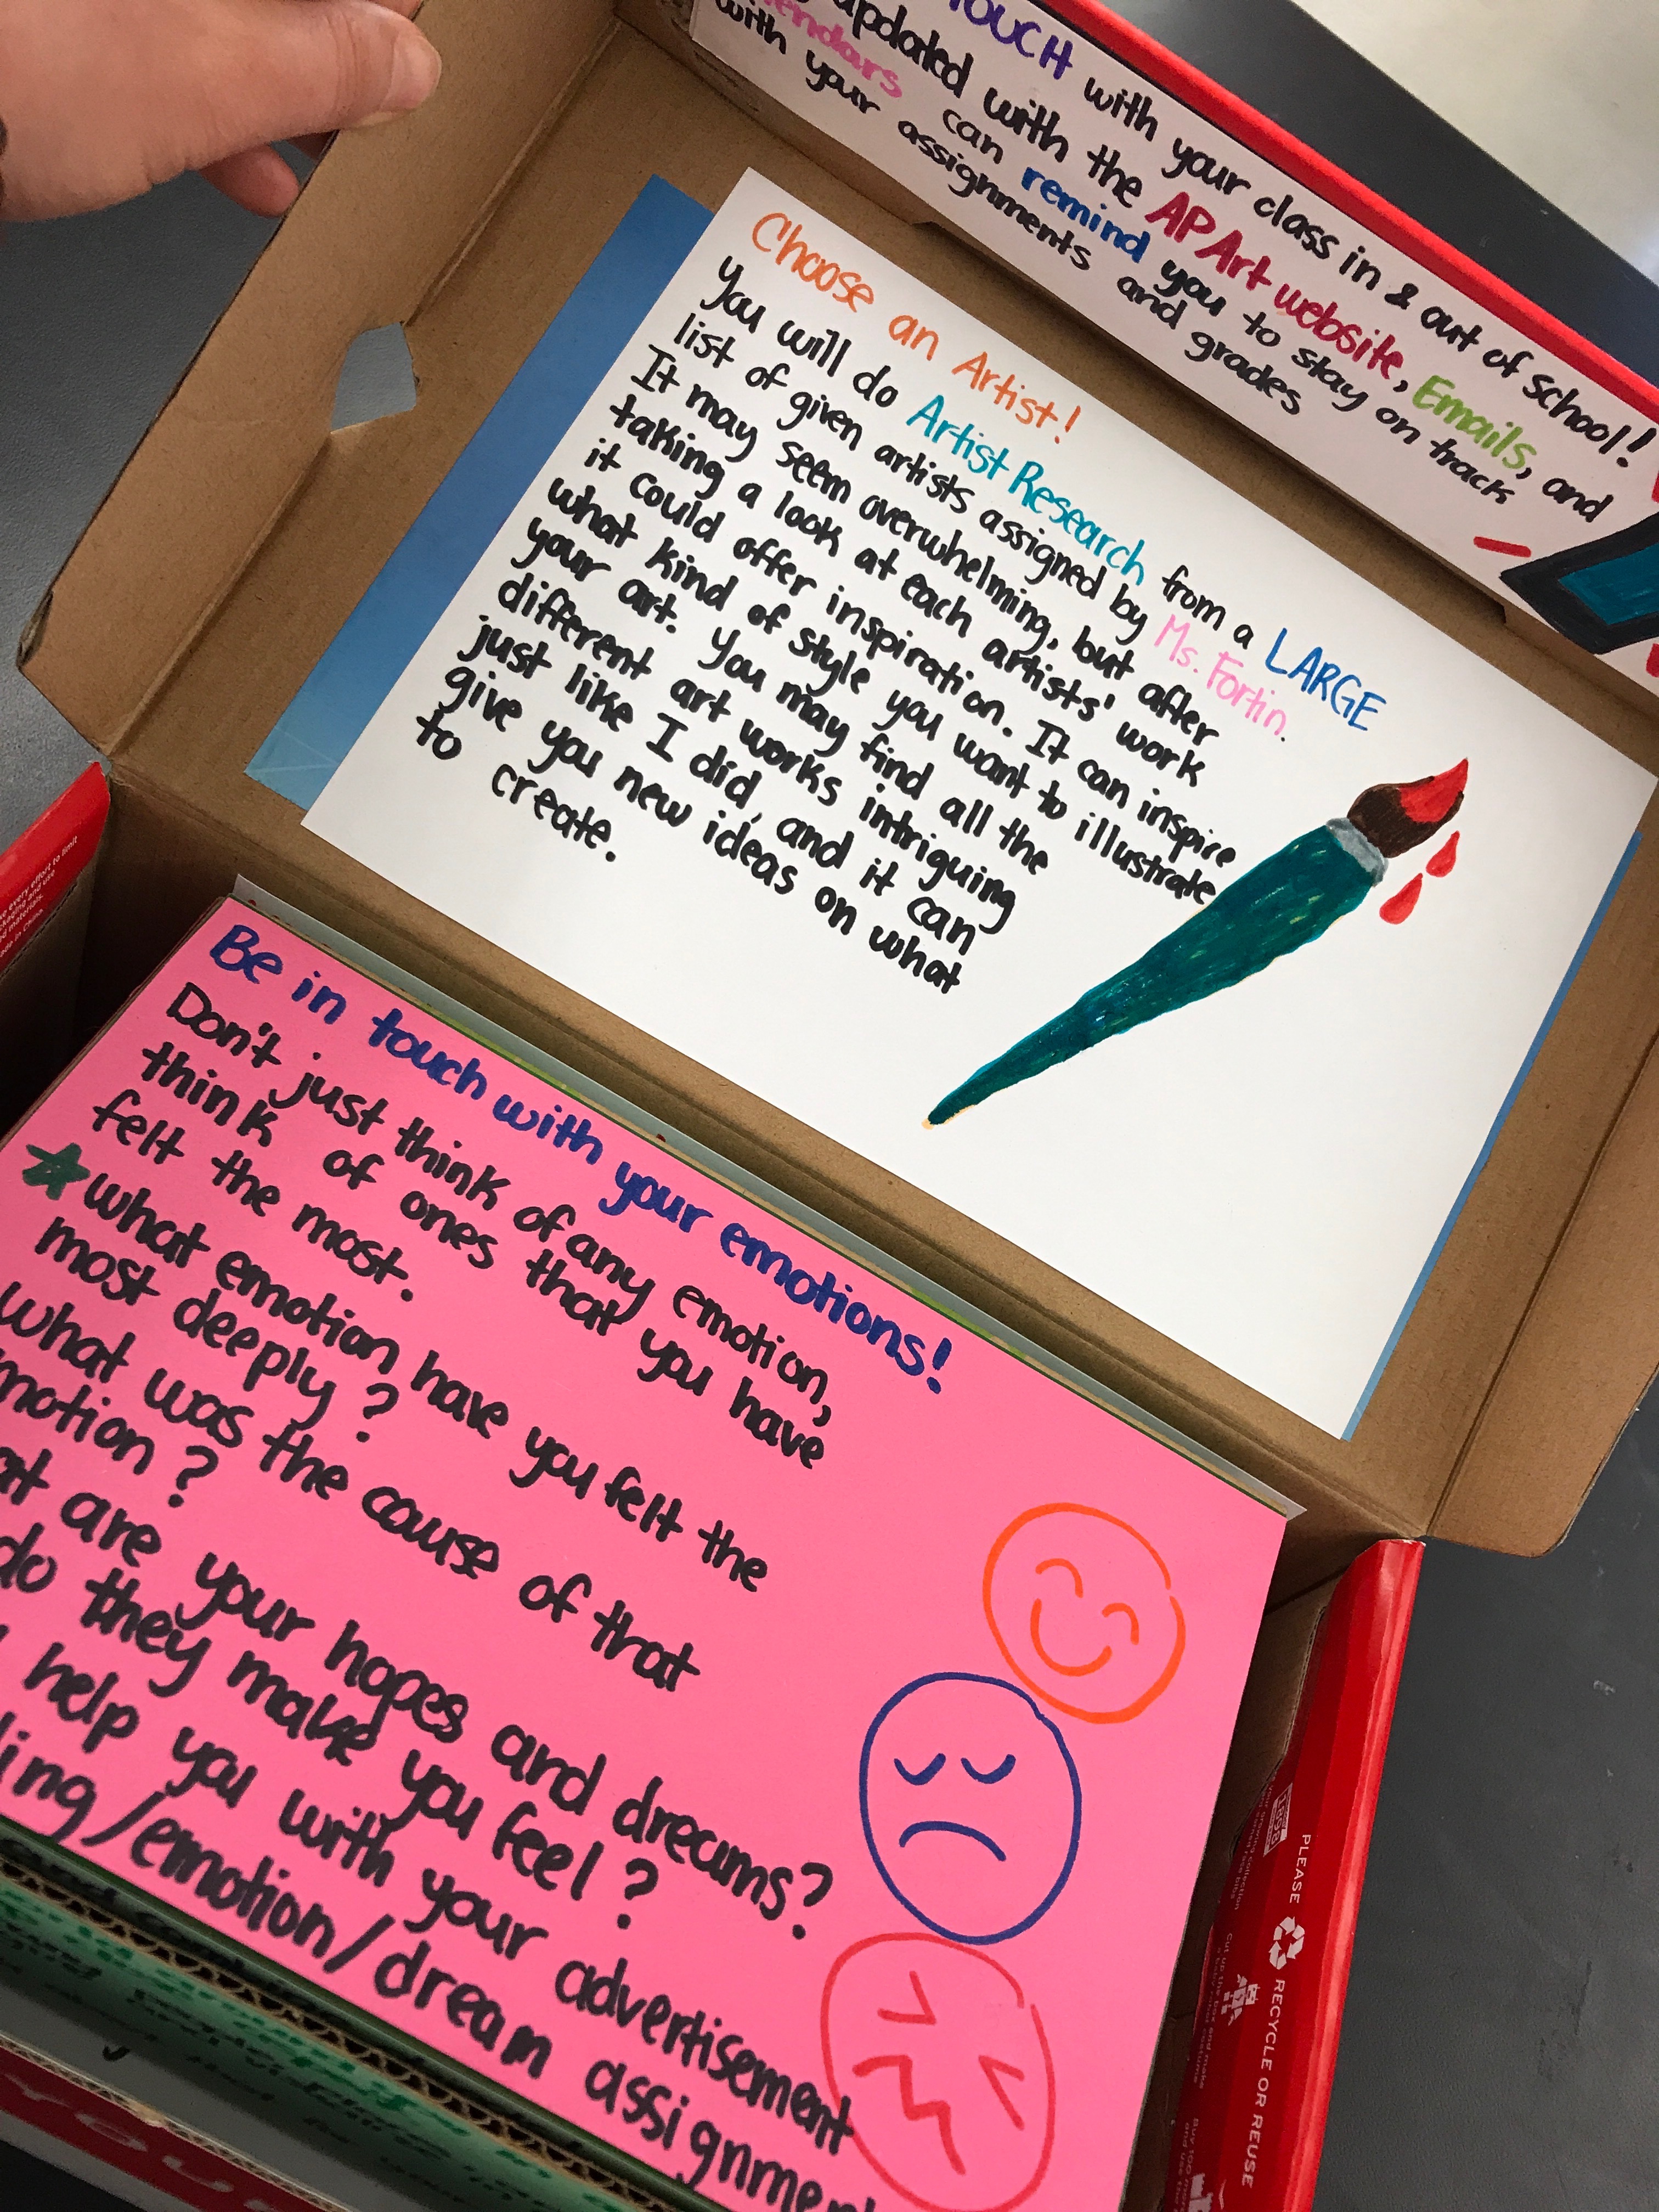 TOUCH with your class in & out of school!
updated with the AP Art website, Emails, and
can remind you to stay on track
with your assignments and grades
Choose an Artist!
You will do Artist Research from a LARGE
list of given artists assigned by Ms. Fortin.
It may seem overwhelming, but after
taking a look at each artists' work
it could offer inspiration. It can inspire
what kind of style you want to illustrate
your art. You may find all the
different art works intriguing
just like I did, and it can
give you new ideas on what
to create.
Be in touch with your emotions!
Don't just think of any emotion,
think of ones that you have
felt the most.
what emotion have you felt the
most deeply?
what was the cause of that
motion?
are your hopes and dreams?
do they make you feel?
help you with your advertisement
ling/emotion/dream assignmen
PLEASE RECYCLE OR REUSE